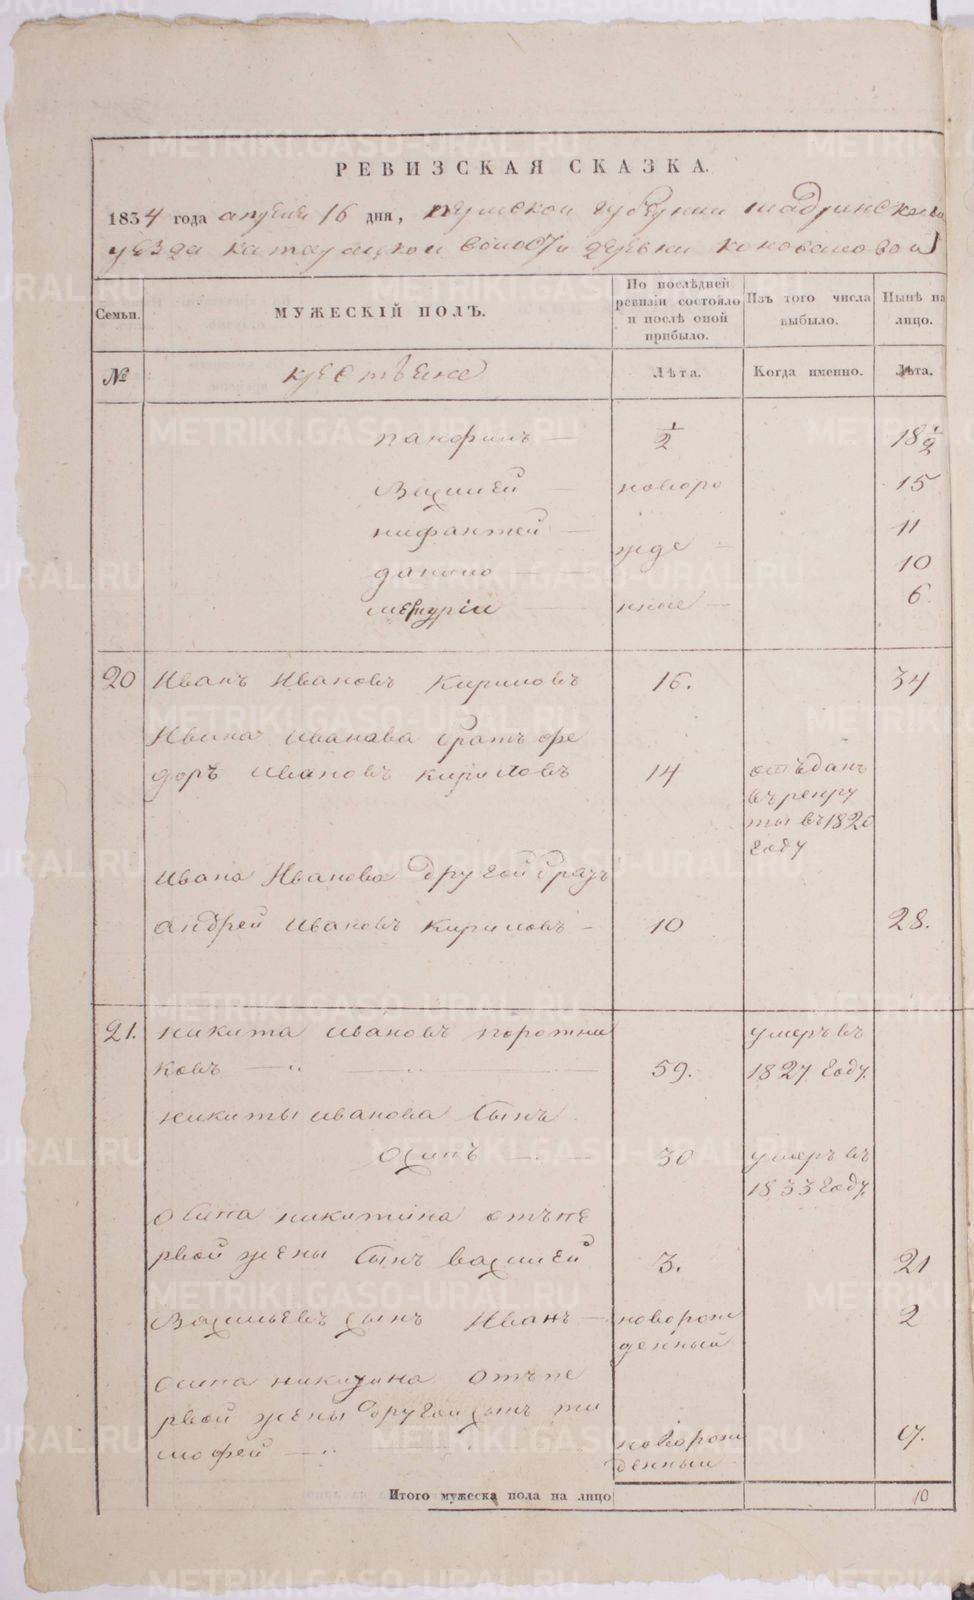 РЕВИЗСКАЯ СКАЗКА.
1834 года апреля 16 дня, пермской губернии шадринскаго
уезда катайцкой волости деревни коноваловой
Семьи.
МУЖЕСКІЙ ПОЛЪ.
По послѣдней ревизіи состояло и послѣ оной прибыло.
Изъ того числа выбыло.
Нынѣ на лицо.
№
крестьене
Лѣта.
Когда именно.
Лѣта.
панфилъ — 1/2 18 1/2
Василей — новоро 15
нифантей — 11
жде —
данило — 10
меркурій — нные — 6.
20 Иванъ Ивановъ Кириловъ 16. 34
Ивана Иванова братъ фе
доръ Ивановъ кириловъ 14 отъданъ
въ рекру
ты въ 1820
году
Ивана Иванова другой братъ
андрей Ивановъ Кириловъ — 10 28.
21. никита Ивановъ поротни умеръ въ
ковъ — 59. 1827 году.
никиты иванова сынъ
осипъ 30 умеръ въ
1833 году.
осипа никитина отъ пе
рвой жены сынъ василей 3. 21
Васильевъ сынъ Иванъ — новорож 2
денный
осипа никитина отъ пе
рвой жены другой сынъ ти
мофей — новорож
денный
Итого мужеска пола на лицо 10
METRIKI.GASO-URAL.RU